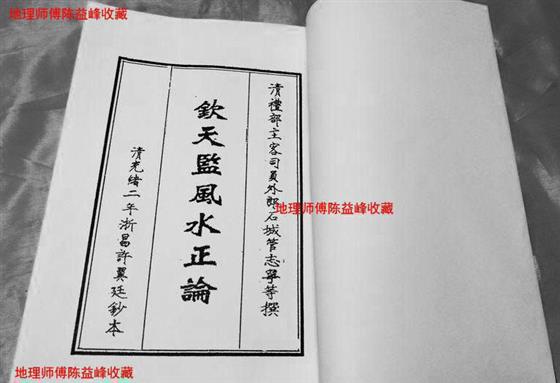 地理师傅陈益峰收藏
清禮部主客司員外郎石城管志寧等撰
欽天監風水正論
清光緒二年浙昌許翼廷鈔本
地理师傅陈益峰收藏
地理师傅陈益峰收藏